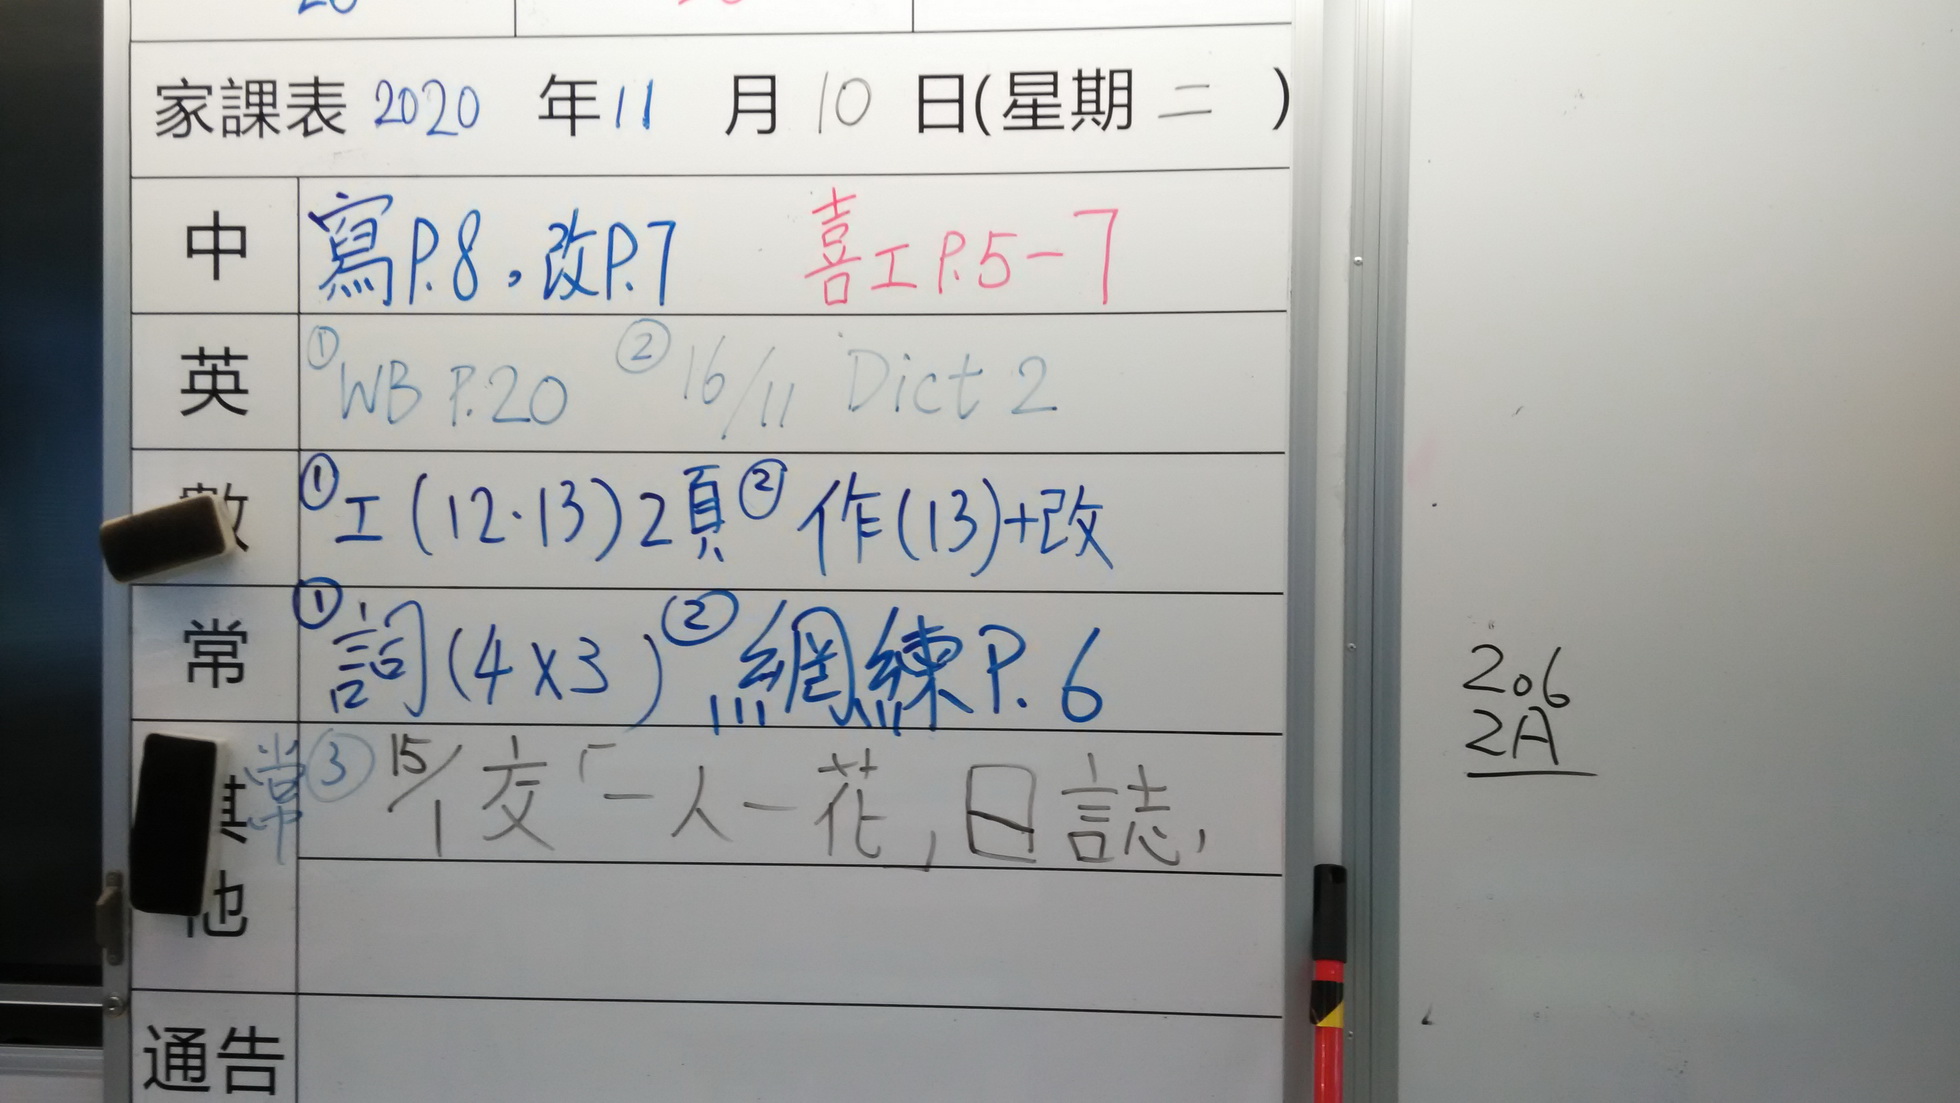 家課表 2020 年 11 月 10 日(星期 二 )
中 寫P.8，改P.7 喜工P.5-7
英 ①WB P.20 ② 16/11 Dict 2
①工(12·13)2頁② 作(13)+改
常 ①詞(4x3) ②網練P.6
常③ 15/1 交「一人一花」日誌,
他
通告
206
2A